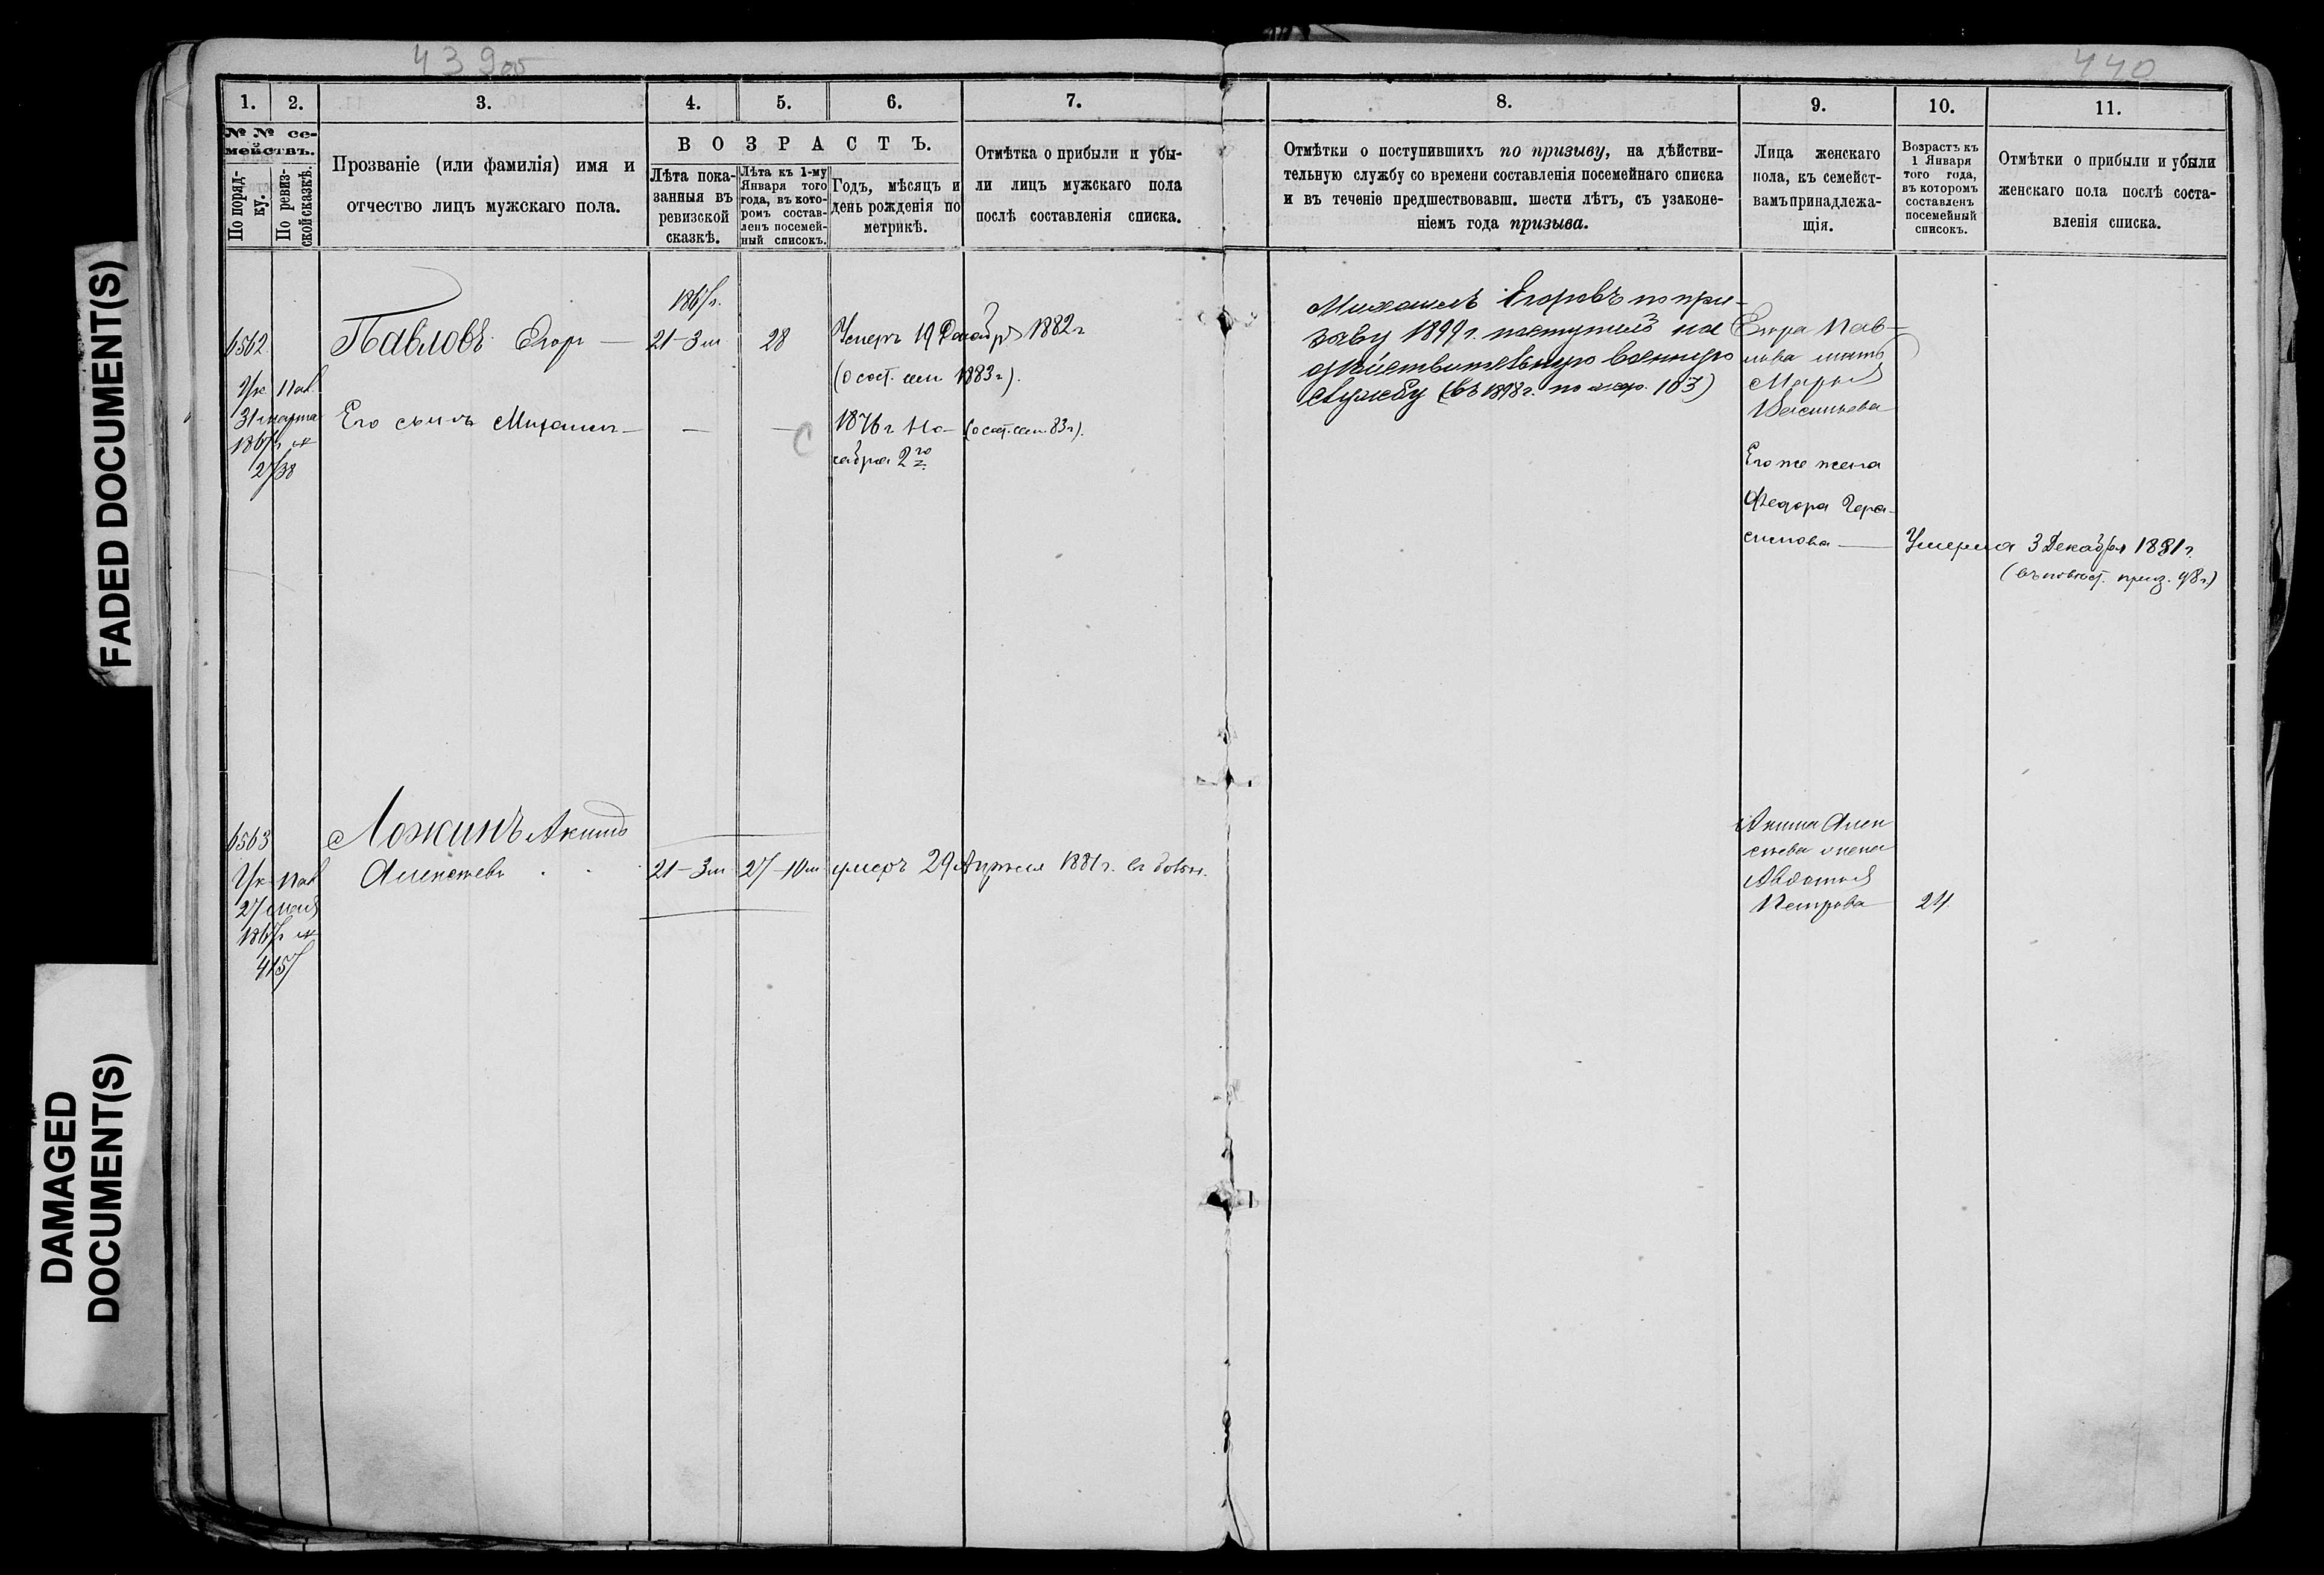 439об
440
FADED DOCUMENT(S)
DAMAGED
DOCUMENT(S)
1.
2.
3.
4.
5.
6.
7.
8.
9.
10.
11.
№ № се-
мействъ.
По поряд-
ку.
По ревиз-
ской сказкѣ.
Прозваніе (или фамилія) имя и
отчество лицъ мужскаго пола.
ВОЗРАСТЪ.
Лѣта пока-
занныя въ
ревизской
сказкѣ.
Лѣта къ 1-му
Января того
года, въ кото-
ромъ состав-
ленъ посемей-
ный списокъ.
Годъ, мѣсяцъ и
день рожденія по
метрикѣ.
Отмѣтка о прибыли и убы-
ли лицъ мужскаго пола
послѣ составленія списка.
Отмѣтки о поступившихъ по призыву, на дѣйстви-
тельную службу со времени составленія посемейнаго списка
и въ теченіе предшествовавш. шести лѣтъ, съ узаконе-
ніемъ года призыва.
Лица женскаго
пола, къ семейст-
вамъ принадлежа-
щія.
Возрастъ къ
1 Января
того года,
въ которомъ
составленъ
посемейный
списокъ.
Отмѣтки о прибыли и убыли
женскаго пола послѣ соста-
вленія списка.
6562
Ук Пал
31 марта
1867г №
2738
Павловъ Егор —
1867г.
21-3м
28
Умеръ 19 Декабря 1882г
(о сост. сем 1883г).
Его сынъ Михаил —
—
—
1876г Но-
ября 2го
(о сост. сем. 83г).
Михаилъ Егоровъ по при-
зыву 1897г. поступилъ на
дѣйствительную военную
службу (въ 1898г. по 103)
Егора Пав-
лова мать
Марья
Васильева
Его же жена
Федора Гера-
симова —
Умерла 3 Декабря 1881г.
98г)
6563
Ук Пал
27 мая
1867г №
4157
Ложинъ Акимъ
Алексѣевъ
21-3м
27-10м
умеръ 29 Апрѣля 1881г.
Акима Алек
сѣева жена
Авдотья
Петрова
24